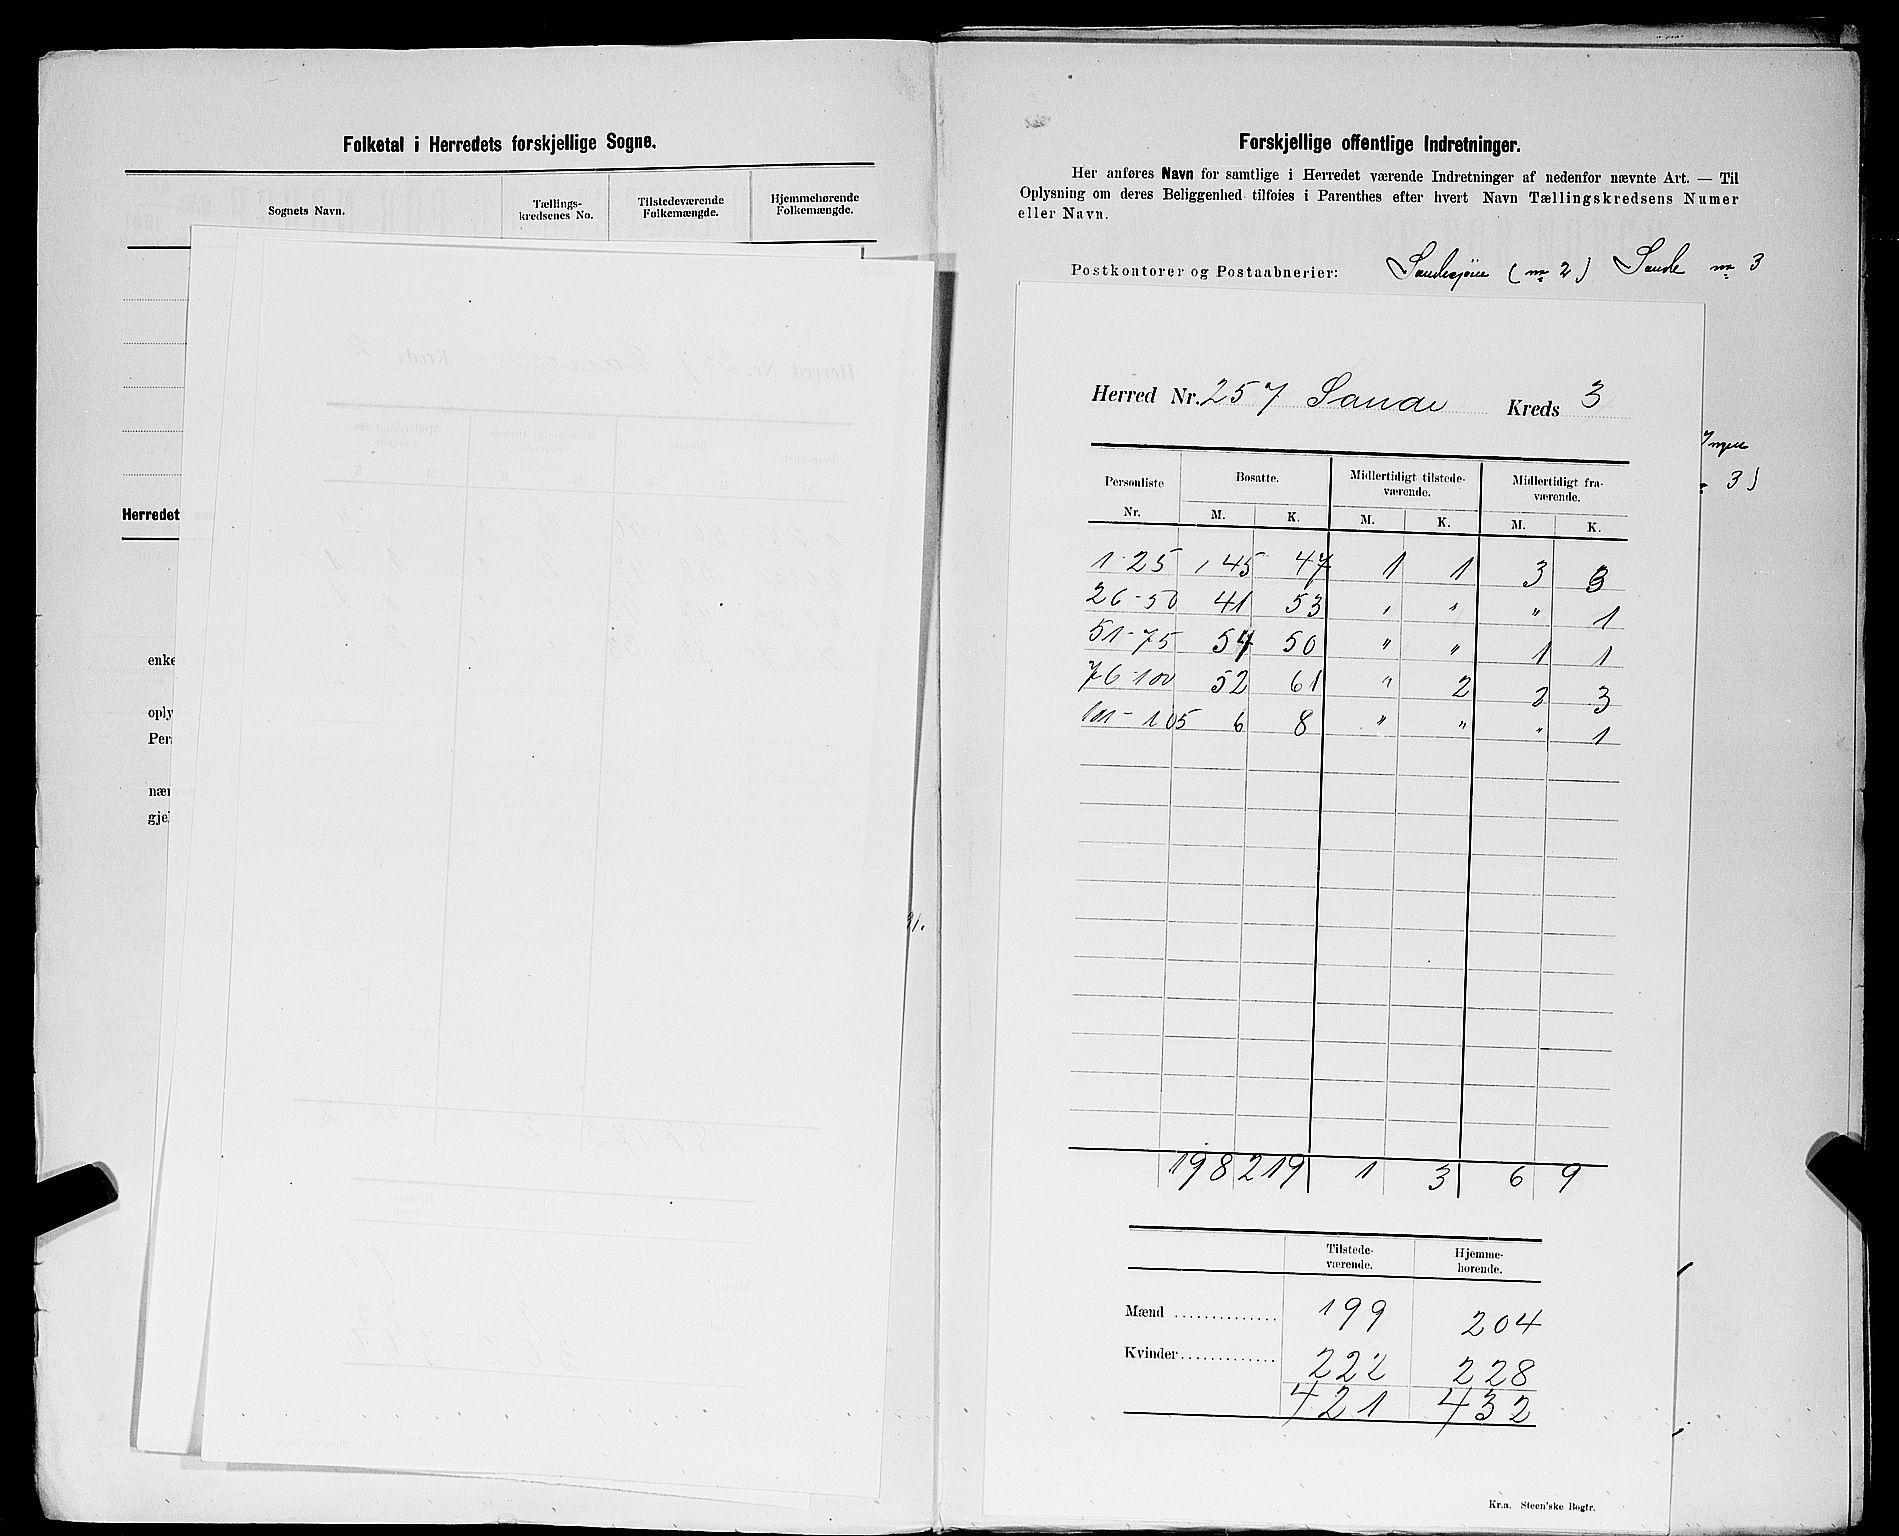 Folketal i Herredets forskjellige Sogne.
Sognets Navn. Tællings-kredsenes No. Tilstedeværende Folkemængde. Hjemmehørende Folkemængde.
Herredet
enke
oply
Per
nær
gje
31.
Forskjellige offentlige Indretninger.
Her anføres Navn for samtlige i Herredet værende Indretninger af nedenfor nævnte Art. — Til
Oplysning om deres Beliggenhed tilføies i Parenthes efter hvert Navn Tællingskredsens Numer
eller Navn.
Postkontorer og Postaabnerier: Sandesjøen (no 2) Sande no 3
3)
Herred Nr. 257 Sande Kreds 3
Personliste Nr. Bosatte. Midlertidigt tilstede-værende. Midlertidigt fra-værende.
M. K. M. K. M. K.
1-25 45 47 1 1 3 3
26-50 41 53 " " " 1
51-75 54 50 " " 1 1
76-100 52 61 " 2 2 3
101-105 6 8 " " " 1
198 219 1 3 6 9
Tilstede-værende. Hjemme-hørende.
Mænd .............. 199 204
Kvinder............. 222 228
421 432
Kr.a. Steen'ske Bogtr.